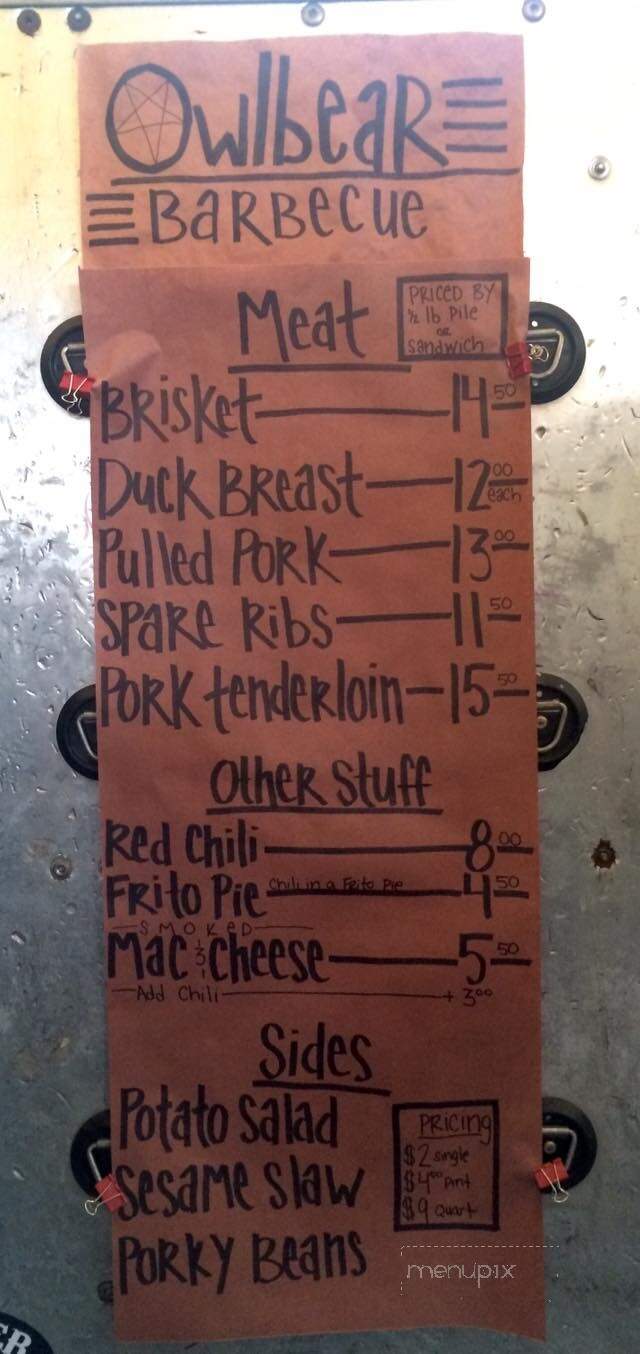 Owlbear
Barbecue
Meat
PRICED BY
½ lb Pile
or
Sandwich
Brisket 14.50
Duck Breast 12.00 each
Pulled Pork 13.00
Spare Ribs 11.50
Pork tenderloin 15.50
Other Stuff
Red Chili 8.00
Frito Pie Chili in a Frito Pie 4.50
SMOKED
Mac & Cheese 5.50
Add Chili + 3.00
Sides
Potato Salad
Sesame Slaw
Porky Beans
PRICING
$2 single
$4.00 Pint
$9 Quart
menupix
ER